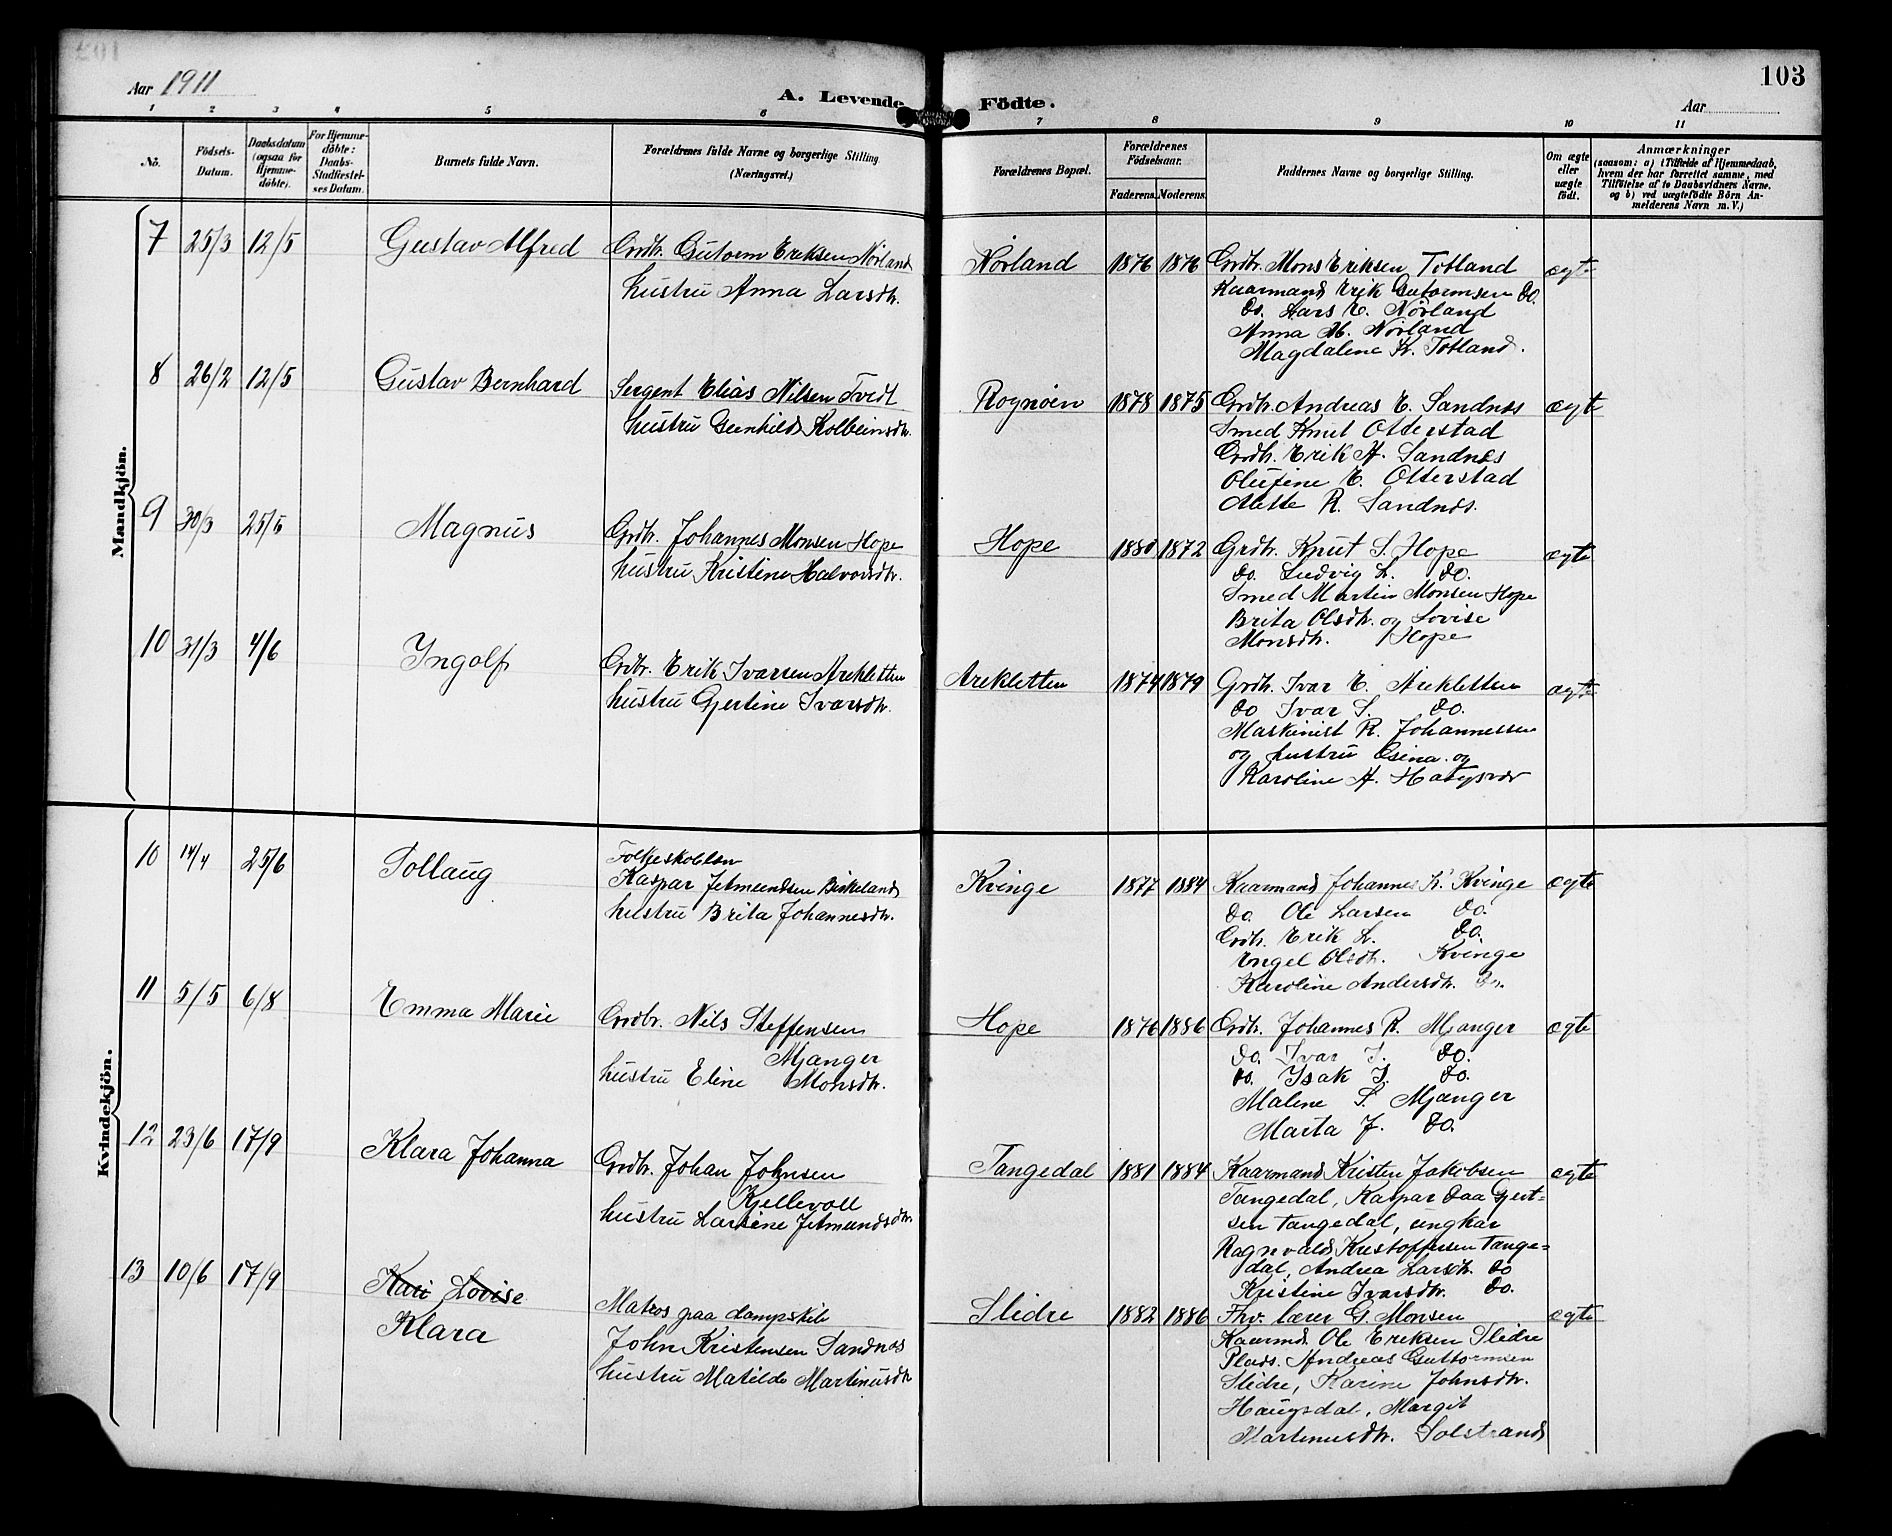 Aar 1911
A. Levende Födte.
103
Aar
1 2 3 4 5 6 7 8 9 10 11
No.
Födsels-
Datum.
Daabsdatum
(ogsaa for
Hjemme-
döbte).
For Hjemme-
döbte:
Daabs-
Stadfæstel-
ses Datum.
Barnets fulde Navn.
Forældrenes fulde Navne og borgerlige Stilling
(Næringsvei.)
Forældrenes Bopæl.
Forældrenes
Födselsaar.
Faderens. Moderens.
Faddernes Navne og borgerlige Stilling.
Om ægte
eller
uægte
födt.
Anmærkninger
(saasom: a) i Tilfælde af Hjemmedaab,
hvem der har forrettet samme, med
Tilföielse af to Daabsvidners Navne.
og b) ved uægtefödte Börn An-
melderens Navn m. V.)
Mandkjön.
7 25/3 12/5 Gustav Alfred
Grdbr. Gutorm Eriksen Nörland
hustru Anna Larsdtr.
Nörland 1876 1876
Grdbr. Mons Eriksen Totland
Kaarmand Erik Gutormsen do.
do. Lars E. Nörland
Anna M. Nörland
Magdalene K. Totland.
ægte
8 26/2 12/5 Gustav Bernhard
Sergent Elias Nilsen Tvedt
hustru Gunhild Kolbeinsdtr.
Rognöen 1878 1875
Grdbr. Andreas E. Sandnæs
Smed Knut Otterstad
Grdbr. Erik A. Sandnæs
Olufine E. Otterstad
Alette R. Sandnæs.
ægte
9 30/3 25/5 Magnus
Grdbr. Johannes Monsen Hope
hustru Kristine Halvorsdtr.
Hope 1880 1872
Grdbr. Knut S. Hope
do. Ludvig L. do.
Smed Martin Monsen Hope
Brita Olsdtr. og Lovise
Monsdtr. Hope
ægte
10 31/3 4/6 Ingolf
Grdbr. Erik Ivarsen Arekletten
hustru Gjertine Ivarsdtr.
Arekletten 1874 1879
Grdbr. Ivar E. Arekletten
do Ivar S. do.
Maskinist R. Johannessen
og hustru Osina og
Karoline A.
ægte
Kvindekjön.
10 14/4 25/6 Sollaug
Folkeskolelær
Kaspar Jetmundsen Birkeland
hustru Brita Johannesdtr.
Kvinge 1877 1884
Kaarmand Johannes K. Kvinge
do. Ole Larsen do.
Grdbr. Erik L. do.
Engel Olsdtr. Kvinge
Karoline Andersdtr. do.
ægte
11 5/5 6/8 Emma Marie
Grdbr. Nils Steffensen
Mjanger
hustru Eline Monsdtr.
Hope 1876 1886
Grdbr. Johannes R. Mjanger
do. Ivar J. do.
do. Isak J. do.
Malene S. Mjanger
Marta J. do.
ægte
12 23/6 17/9 Klara Johanna
Grdbr. Johan Johnsen
Kjellevoll
hustru Larsine Jetmundsdtr.
Tangedal 1881 1884
Kaarmand Kristen Jakobsen
Tangedal, Kaspar Daa Gjert-
sen Tangedal, ungkar
Ragnvald Kristoffersen Tange-
dal, Andrea Larsdtr. do
Kristine Ivarsdtr. do.
ægte
13 10/6 17/9 Kari Lovise
Klara
Matros paa dampskib
John Kristensen Sandnæs
hustru Matilde Martinusdtr
Slidre 1882 1886
Fhv. lærer G. Monsen
Kaarmd. Ole Eriksen Slidre
Plads. Andreas Guttormsen
Slidre, Karine Johnsdtr.
Haugsdal, Margit
Martinusdtr. Solstrand
ægte